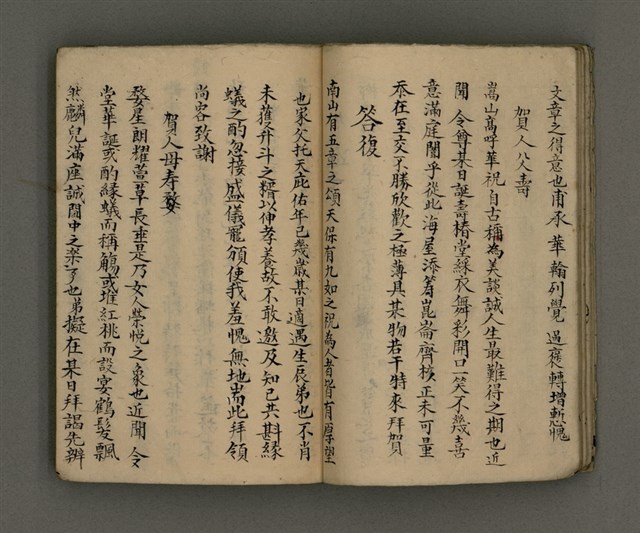 文章之得意也甫承 華翰列覺 過褒轉增慙愧
賀人父壽
嵩山高呼華祝自古稱為美談誠人生最難得之期也近
聞 令尊某日誕壽椿堂綵衣舞彩開口一笑不幾喜
意滿庭闈乎從此海屋添籌崑崙齊核正未可量
忝在至交不勝欣歡之極薄具某物若干特來拜賀
答復
南山有五章之頌天保有九如之祝為人者皆有厚望
也家父托天庇佑年已幾歲某日適遇生辰弟也不肖
未獲升斗之糈以伸孝養故不敢邀及知己共斟綠
蟻之酌忽接盛儀寵頒使我羞愧無地耑此拜領
尚容致謝
賀人母寿婺
婺星朗耀萱草長垂是乃女人榮悅之象也近聞 令
堂華誕或酌綠蟻而稱觴或堆紅桃而設宴鶴髮飄
然麟兒滿座誠閨中之榮事也弟擬在某日拜謁先辦